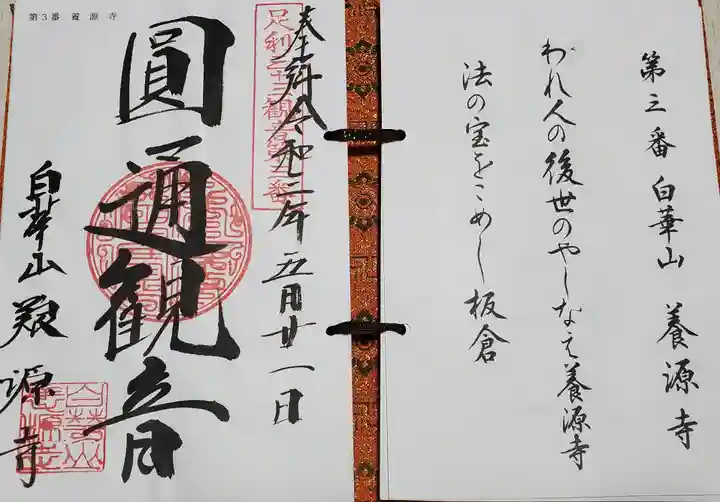 第三番 白華山 養源寺
われ人の後世のやしなえ養源寺
法の宝をこめし板倉
第3番 養源寺
足利三十三観音第三番
奉拜 令和二年五月廿一日
圓通観音
白華山 養源寺